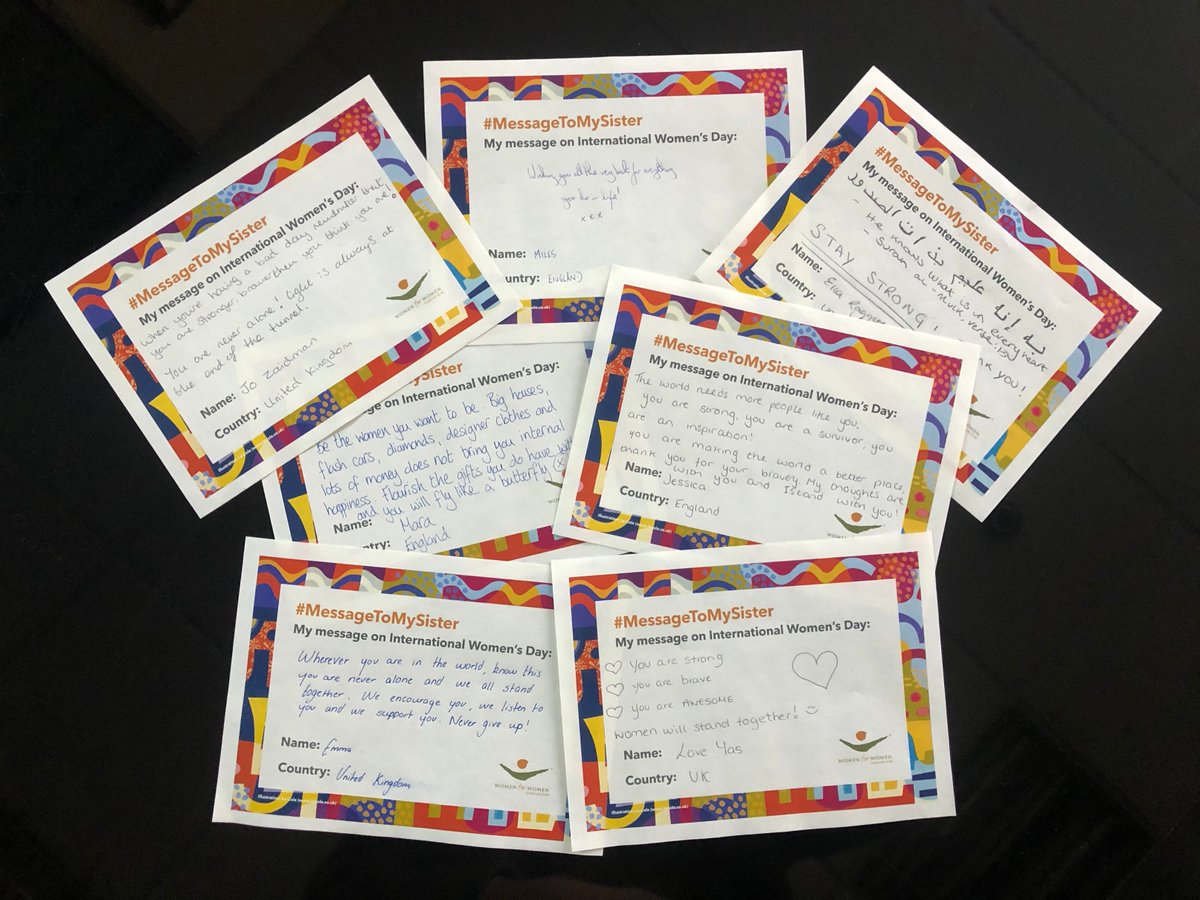 #MessageToMySister
My message on International Women's Day:
Wishing you all the very best for everything
you do in life!
x x x
Name: MILES
Country: ENGLAND
#MessageToMySister
My message on International Women's Day:
When you're having a bad day remember that
you are stronger braver then you think you are!
You are never alone! light is always at
the end of the tunnel.
Name: Jo Zaidman
Country: United Kingdom
WOMEN for WOMEN
#MessageToMySister
My message on International Women's Day:
إنه عليم بذات الصدور
- He knows what is in every heart
- Surah al-Mulk, verse: 13
STAY STRONG!
Thank you!
Name:
Country:
MessageToMySister
message on International Women's Day:
be the women you want to be. Big houses,
flash cars, diamonds, designer clothes and
lots of money does not bring you internal
happiness. Flourish the gifts you do have with
and you will fly like a butterfly
Name: Mara
Country: England
#MessageToMySister
My message on International Women's Day:
The world needs more people like you.
you are strong, you are a survivor, you
are an inspiration!
you are making the world a better place,
thank you for your bravery. My thoughts are
with you and I stand with you!
Name: Jessica
Country: England
WOMEN for WOMEN
#MessageToMySister
My message on International Women's Day:
Wherever you are in the world, know this
you are never alone and we all stand
together. We encourage you, we listen to
you and we support you. Never give up!
Name: Emma
Country: United Kingdom
WOMEN for WOMEN
#MessageToMySister
My message on International Women's Day:
You are strong
you are brave
you are AWESOME
women will stand together!
Name: Love Yas
Country: UK
WOMEN for WOMEN